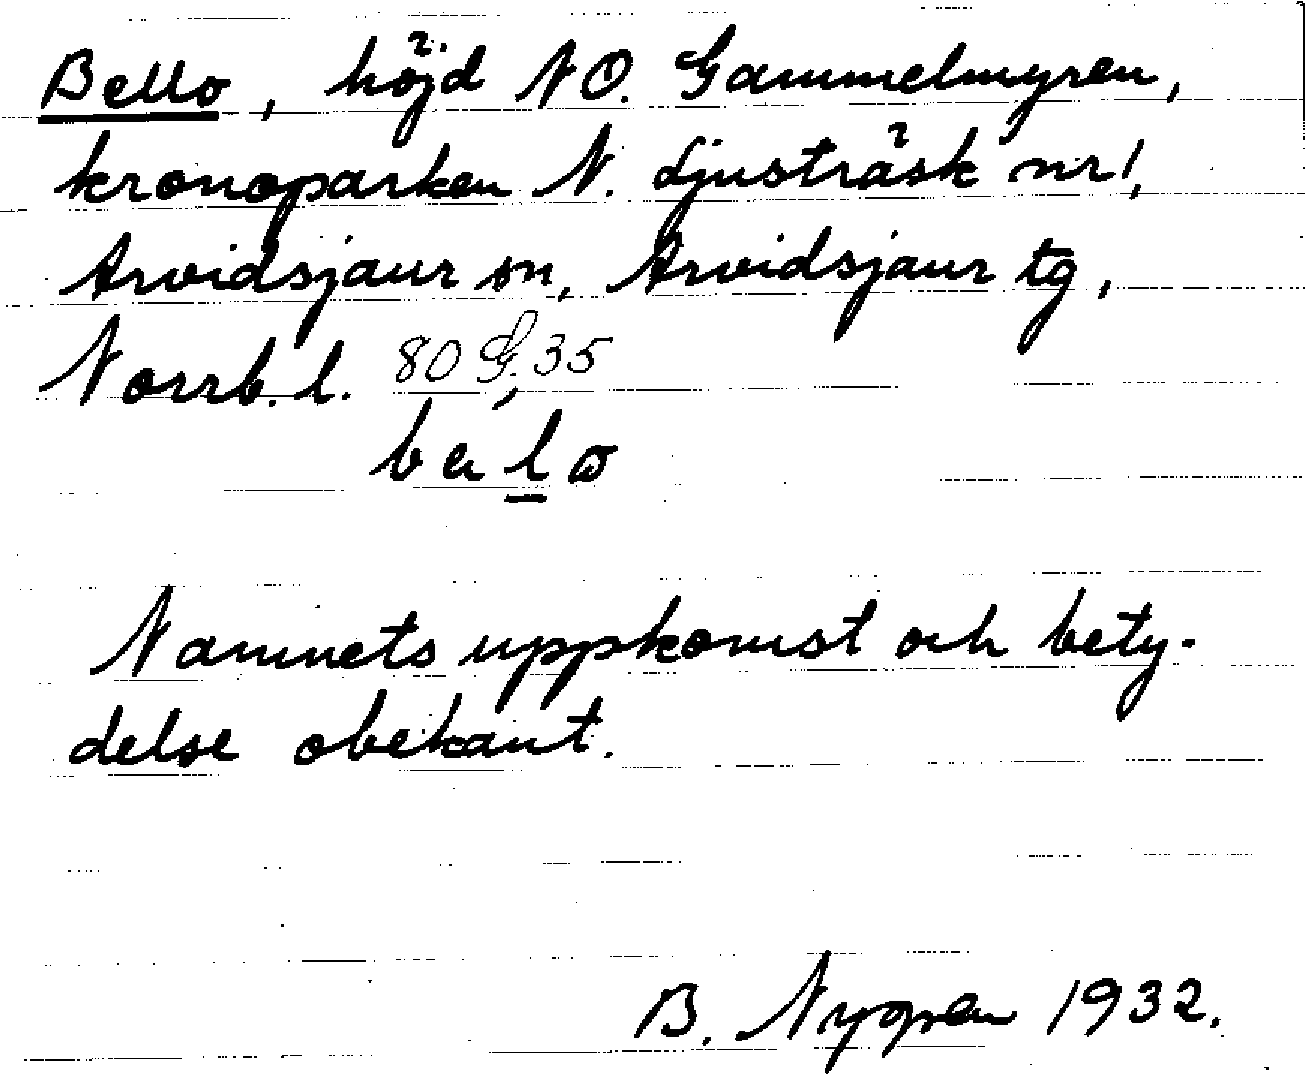 Bello, höjd NO. Gammelmyren,
kronoparken N. Ljusträsk nr 1,
Arvidsjaur sn, Arvidsjaur tg,
Norrb. l. 80 35
Namnets uppkomst och bety-
delse obekant.
B. Nygren 1932.